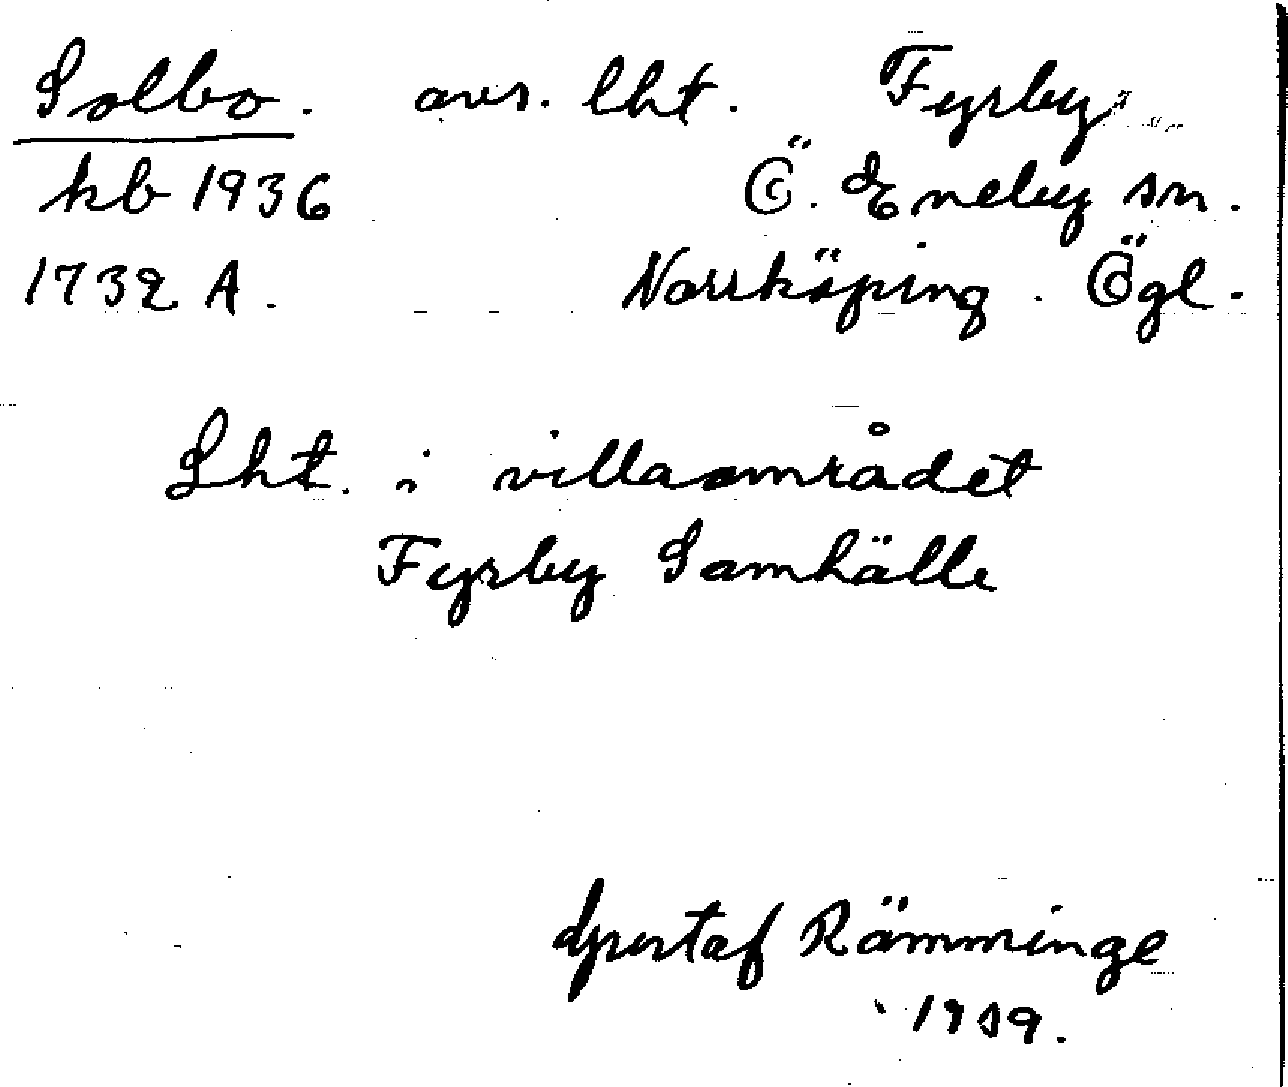 Solbo. avs. lht. Fyrby
kb 1936 Ö. Eneby sn.
1732 A. Norrköping. Ögl.
Lht. i villaområdet
Fyrby Samhälle
Gustaf Rämminge
1939.